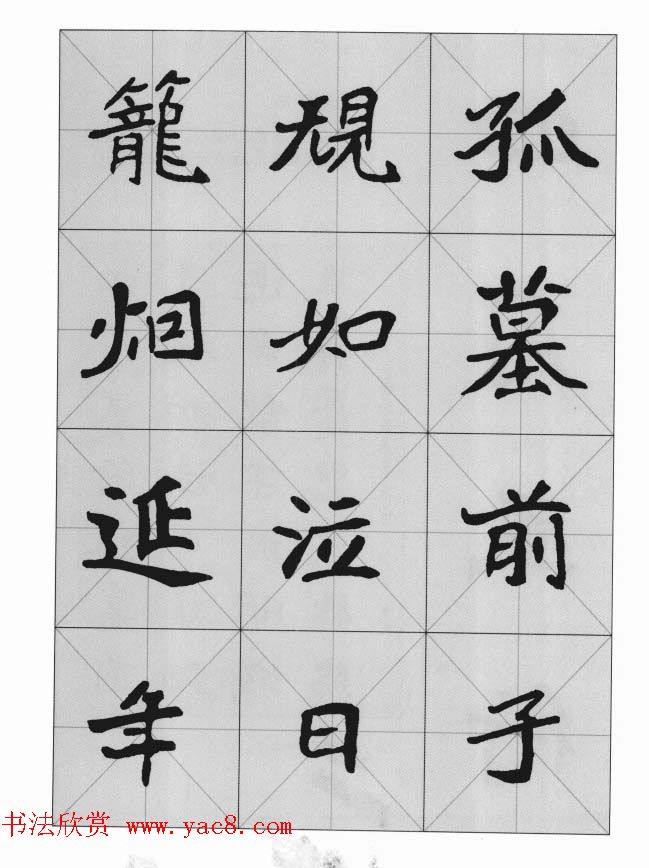 孤墓前子
規如泣日
籠烟延年
书法欣赏 www.yac8.com